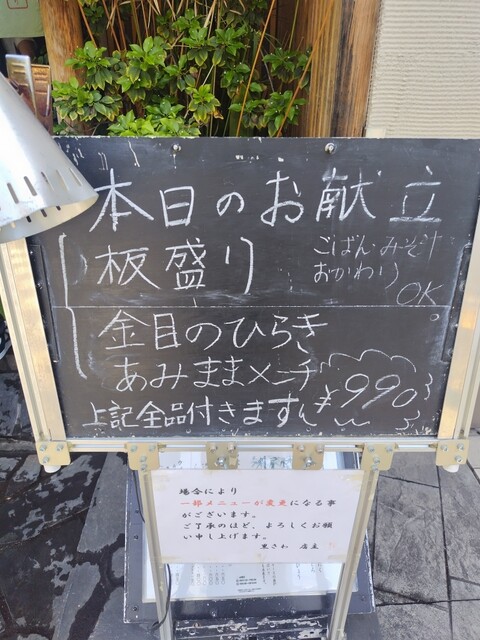 本日のお献立
板盛り
ごはん・みそ汁
おかわり
OK
金目のひらき
あみままメニチ
上記全品付きます
¥990
場合により
一部メニューが変更になる事
がございます。
ご了承のほど、よろしくお願
い申し上げます。
黒さわ 店主